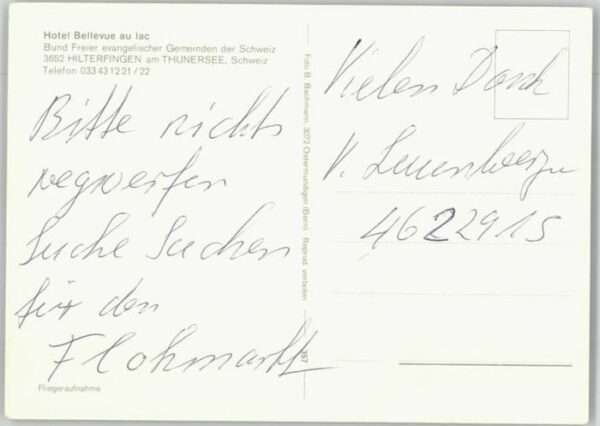 Hotel Bellevue au lac
Bund Freier evangelischer Gemeinden der Schweiz
3652 HILTERFINGEN am THUNERSEE, Schweiz
Telefon 033 43 12 21 / 22
Bitte nichts
wegwerfen
Suche Sachen
für den
Flohmarkt
Fliegeraufnahme
Foto B. Bachmann, 3072 Ostermundigen (Bern) Reprod. verboten
Vielen Dank
V. Leuenberger
4622915